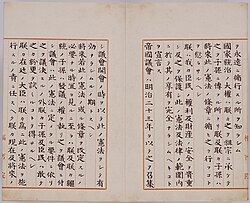 永遠ニ循行スル所ヲ知ラシム
國家統治ノ大權ハ朕カ之ヲ祖宗ニ承ケテ
之ヲ子孫ニ傳フル所ナリ朕及朕カ子孫ハ
將來此ノ憲法ノ條章ニ循ヒ之ヲ行フコト
ヲ愆ラサルヘシ
朕ハ我カ臣民ノ權利及財産ノ安全ヲ貴重
シ及之ヲ保護シ此ノ憲法及法律ノ範圍内
ニ於テ其ノ享有ヲ完全ナラシムヘキコト
ヲ宣言ス
帝國議會ハ明治二十三年ヲ以テ之ヲ召集シ
議會開會ノ時ヲ以テ此ノ憲法ヲシテ有
効ナラシムルノ期トスヘシ
將來若此ノ憲法ノ或ル條章ヲ改定スルノ
必要ナル時宜ヲ見ルニ至ラハ朕及朕カ繼
統ノ子孫ハ發議ノ權ヲ執リ之ヲ議會ニ付
シ議會ハ此ノ憲法ニ定メタル要件ニ依リ
之ヲ議決スルノ外朕カ子孫及臣民ハ敢テ
之カ紛更ヲ試ミルコトヲ得サルヘシ
朕カ在廷ノ大臣ハ朕カ爲ニ此ノ憲法ヲ施
行スルノ責ニ任スヘク朕カ現在及將來ノ